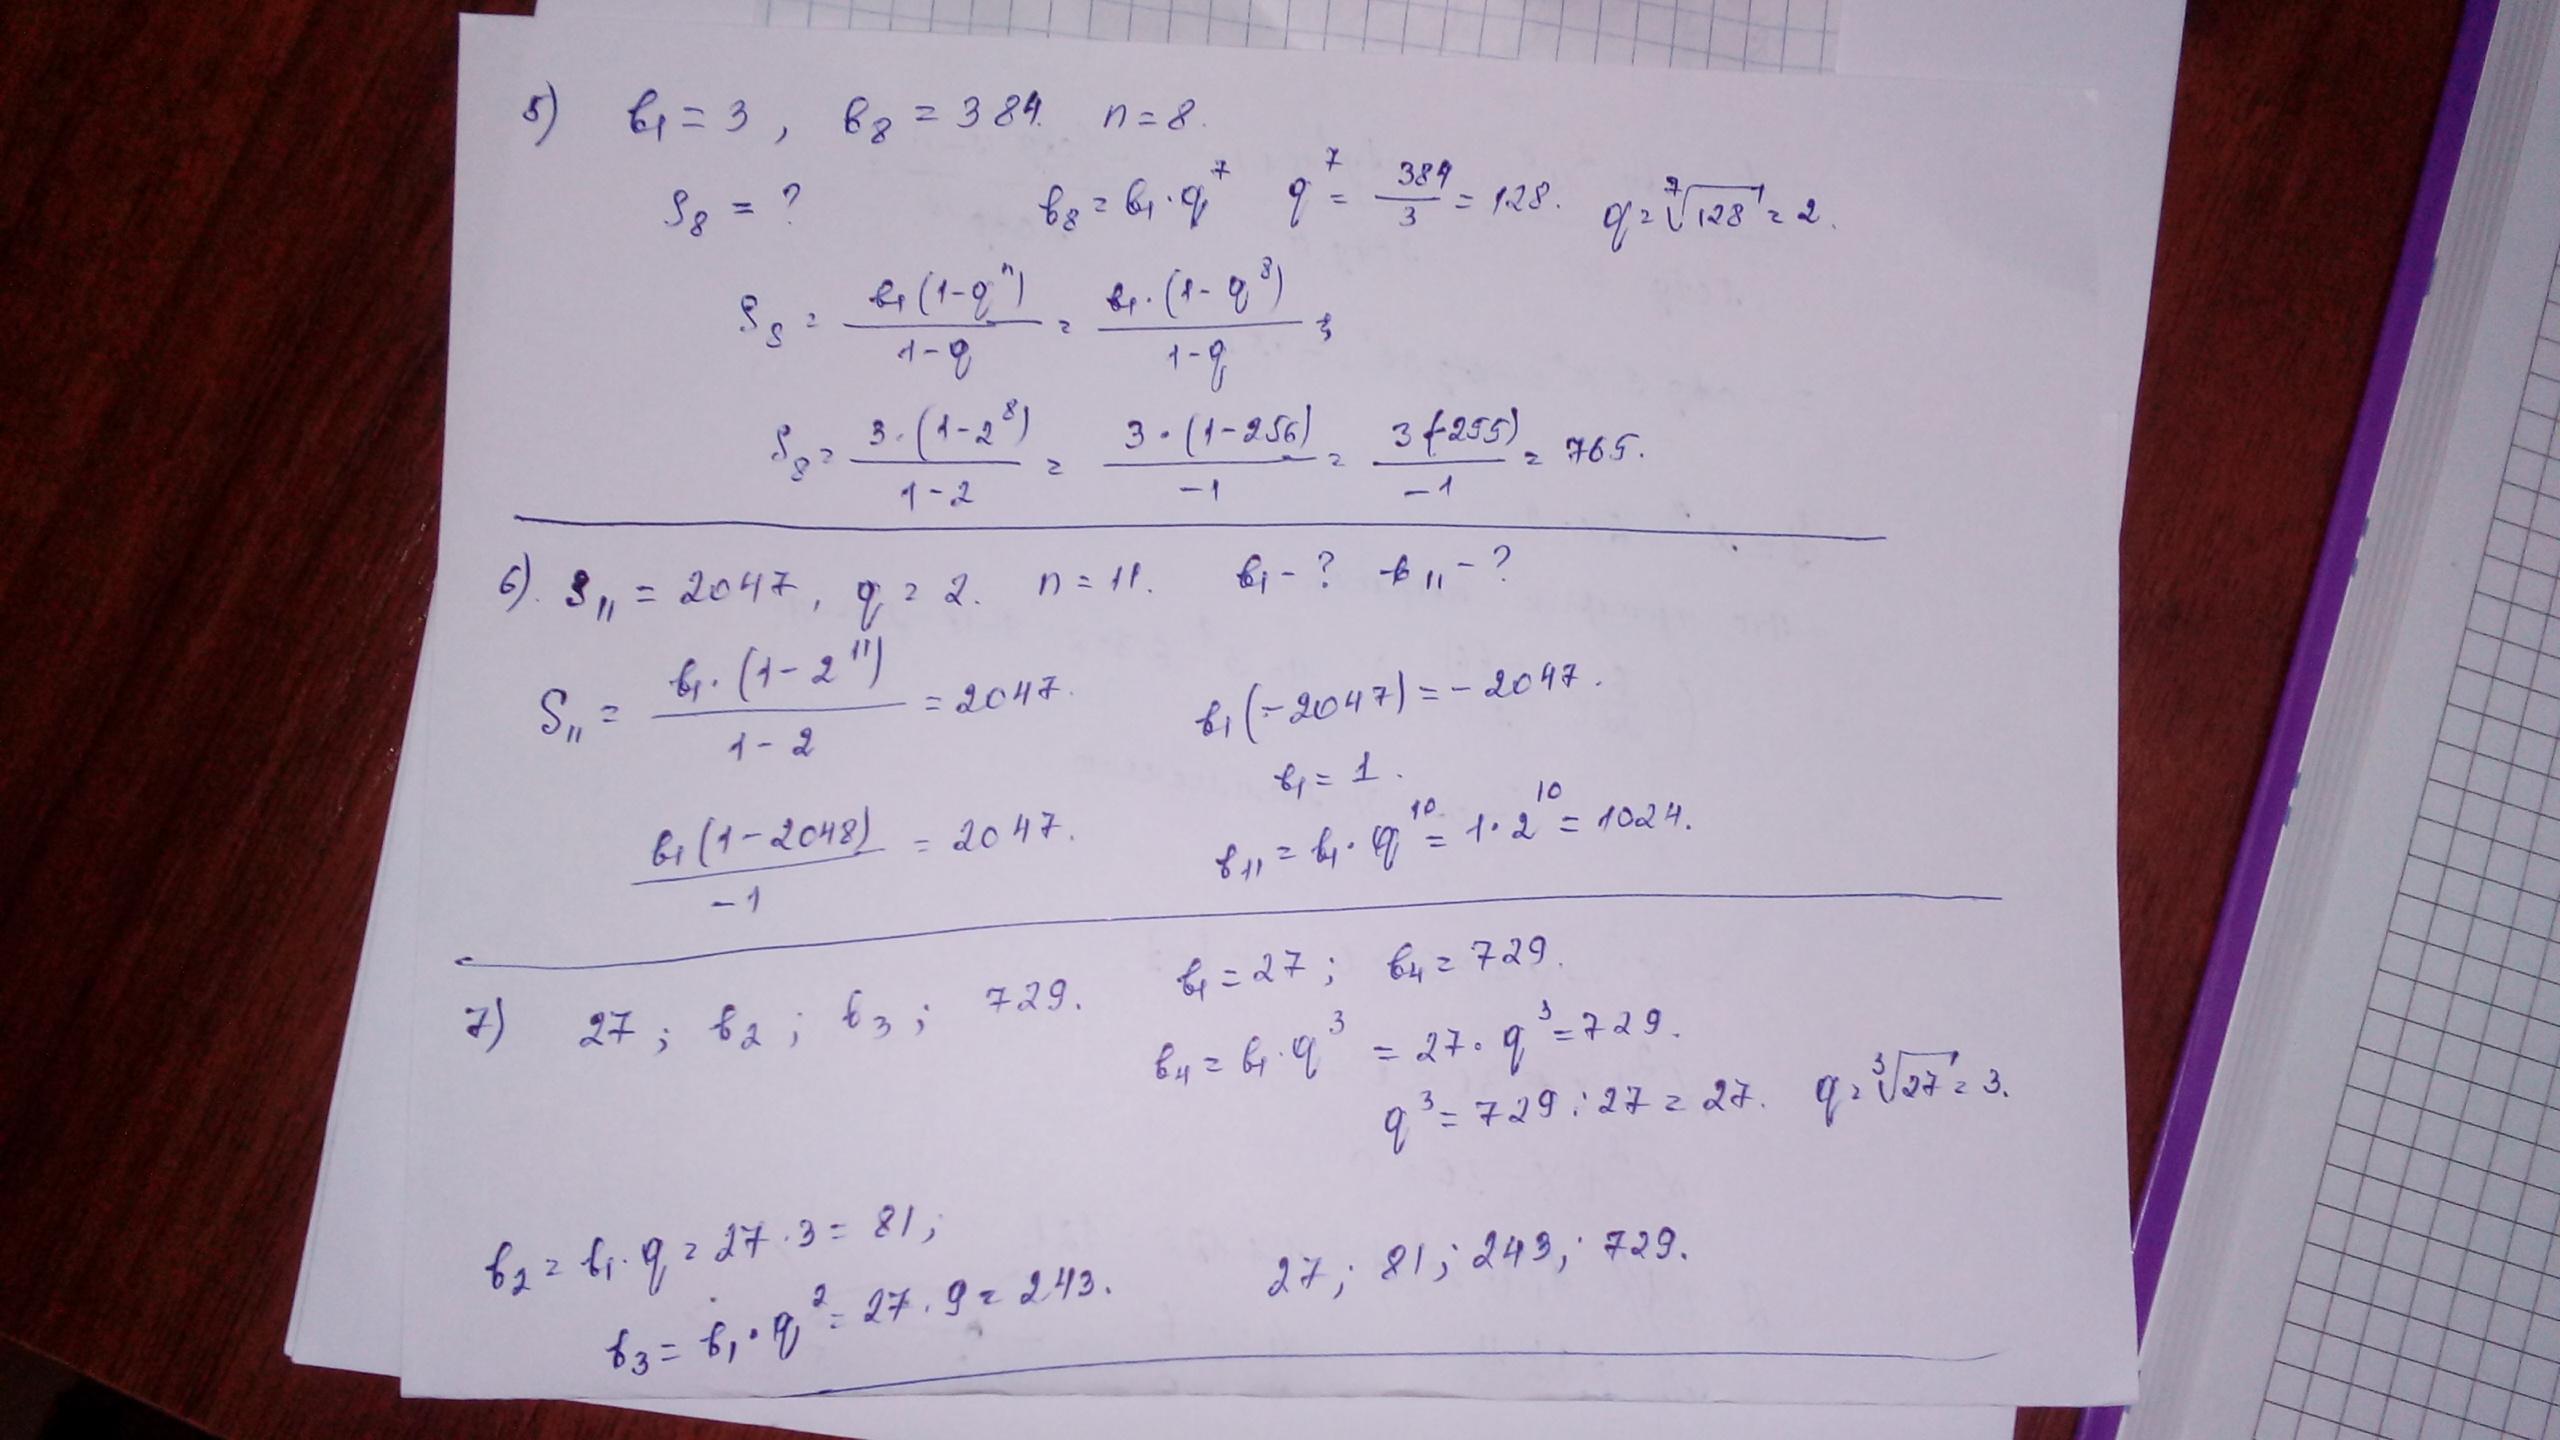 5) b₁ = 3 , b₈ = 384. n = 8.
S₈ = ? b₈ = b₁ · q⁷ q⁷ = 384/3 = 128. q = ⁷√128 = 2.
S₈ = b₁(1-qⁿ)/(1-q) = b₁·(1-q⁸)/(1-q) ;
S₈ = 3·(1-2⁸)/(1-2) = 3·(1-256)/(-1) = 3(-255)/(-1) = 765.
6). S₁₁ = 2047, q = 2. n = 11. b₁ - ? b₁₁ - ?
S₁₁ = b₁·(1-2¹¹)/(1-2) = 2047. b₁(-2047) = -2047.
b₁ = 1.
b₁(1-2048)/(-1) = 2047. b₁₁ = b₁·q¹⁰ = 1·2¹⁰ = 1024.
7) 27; b₂; b₃; 729. b₁ = 27; b₄ = 729.
b₄ = b₁·q³ = 27·q³ = 729.
q³ = 729 : 27 = 27. q = ³√27 = 3.
b₂ = b₁·q = 27·3 = 81;
b₃ = b₁·q² = 27·9 = 243. 27; 81; 243; 729.